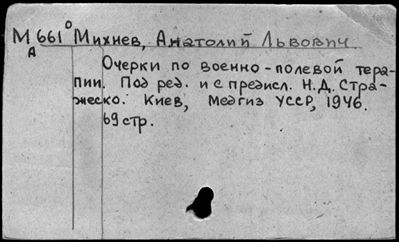 М 661° Михнев, Анатолий Львович
А
Очерки по военно-полевой тера-
пии. Под ред. и с предисл. Н.Д. Стра-
жеско. Киев, Медгиз УССР, 1946.
69 стр.